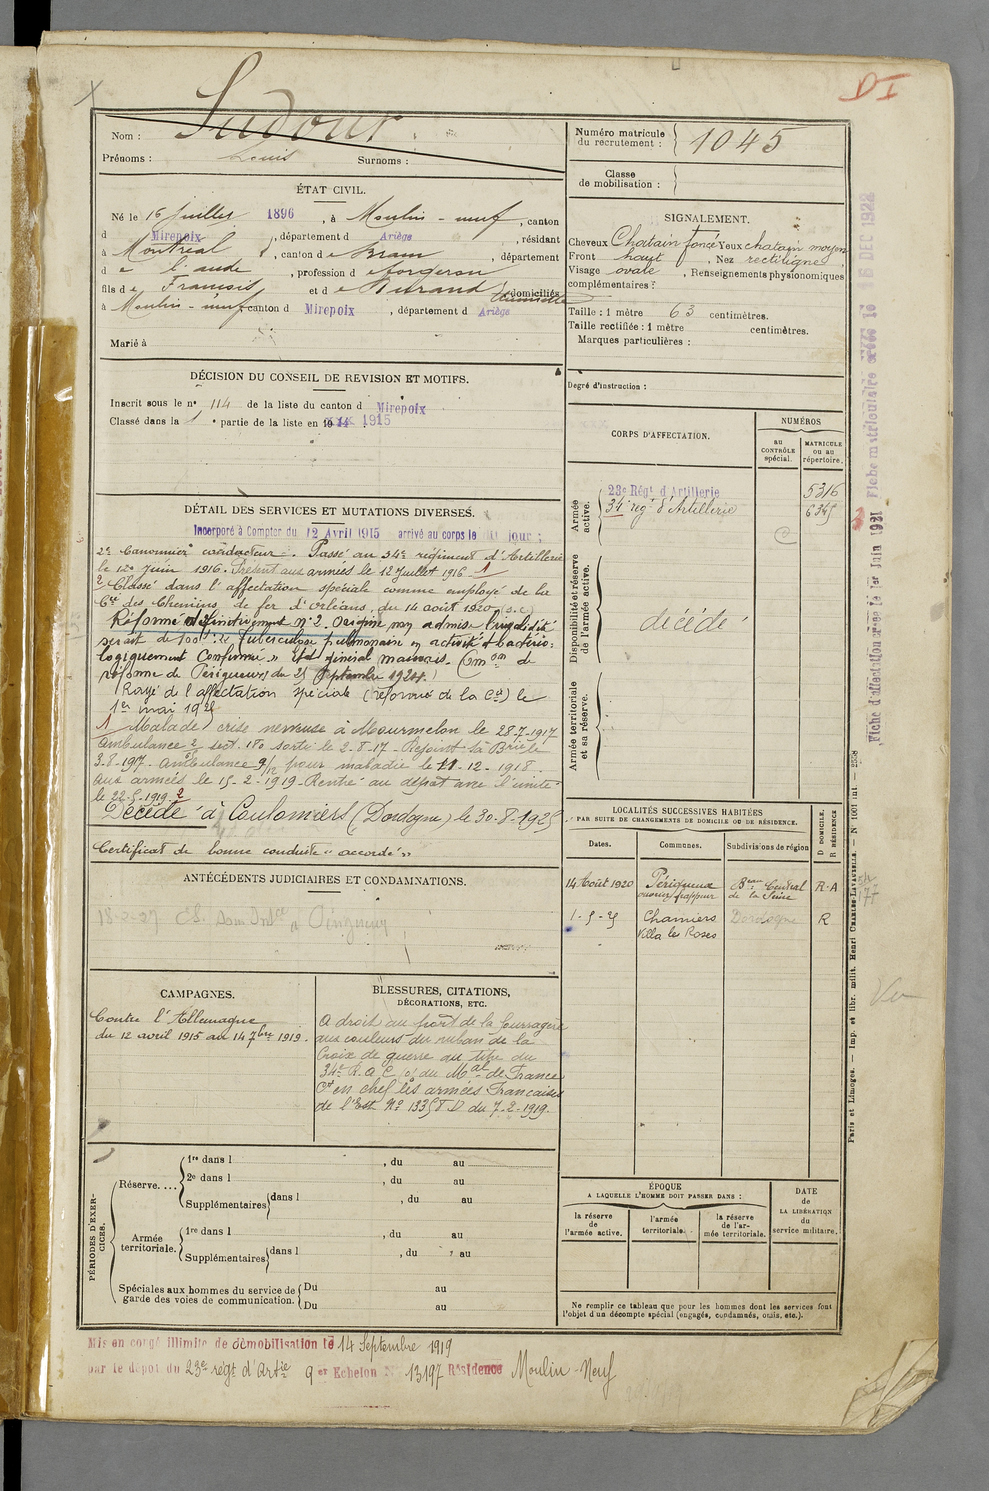 DI
Nom : Sudour
Prénoms : Louis Surnoms :
Numéro matricule du recrutement : 1045
Classe de mobilisation :
ÉTAT CIVIL.
Né le 16 Juillet 1896, à Moulin-neuf, canton
d Mirepoix, département d Ariège, résidant
à Montréal, canton de Bram, département
de l'aude, profession de forgeron
fils de François et de Durand domiciliés
à Moulin-neuf, canton d Mirepoix, département d Ariège
Marié à
SIGNALEMENT.
Cheveux Chatain foncé Yeux chatain moyen
Front haut, Nez rectiligne
Visage ovale, Renseignements physionomiques
complémentaires :
Taille : 1 mètre 63 centimètres.
Taille rectifiée : 1 mètre centimètres.
Marques particulières :
Degré d'instruction :
DÉCISION DU CONSEIL DE REVISION ET MOTIFS.
Inscrit sous le nº 114 de la liste du canton d Mirepoix
Classé dans la 1 e partie de la liste en 1915
CORPS D'AFFECTATION.
NUMÉROS
au CONTRÔLE spécial.
MATRICULE ou au répertoire.
Armée active.
23e Régt d'Artillerie 5316
34e rég d'Artillerie 6345
Disponibilité et réserve de l'armée active.
décédé
Armée territoriale et sa réserve.
DÉTAIL DES SERVICES ET MUTATIONS DIVERSES.
Incorporé à Compter du 12 Avril 1915 arrivé au corps le dit jour ;
2e Canonnier conducteur. Passé au 34e régiment d'Artillerie
le 12 Juin 1916. Présent aux armées le 12 Juillet 1916. 1
2 Classé dans l'affectation spéciale comme employé de la
Cie des Chemins de fer d'Orléans, du 14 août 1920 (s.c)
Réformé définitivement nº 2. Origine non admise Invalidité
serait de 100% : Tuberculose pulmonaire en activité bactério-
logiquement Confirmée » Etat général mauvais. (Comon de
réforme de Périgueux, du 25 Septembre 1924.)
Rayé de l'affectation spéciale (réformé de la Cie) le
1er mai 1925
1 Malade crise nerveuse à Mourmelon le 28-7-1917
Ambulance 2/ sect. 180 sorti le 2-8-17 - Rejoint sa Brie le
3-8-1917 - Ambulance 9/12 pour maladie le 11-12-1918
aux armées le 15-2-1919 - Rentré au dépôt avec l'unité
le 22-5-1919. 2
Décédé à Coulounieix (Dordogne) le 30-8-1925
Certificat de bonne conduite « accordé »
LOCALITÉS SUCCESSIVES HABITÉES
PAR SUITE DE CHANGEMENTS DE DOMICILE OU DE RÉSIDENCE.
Dates. Communes. Subdivisions de région D DOMICILE. R RÉSIDENCE
14 Août 1920 Périgueux ouvrier frappeur Beau Central de la Seine R.A
1-5-25 Chamiers Villa les Roses Dordogne R
ANTÉCÉDENTS JUDICIAIRES ET CONDAMNATIONS.
CAMPAGNES.
Contre l'Allemagne
du 12 avril 1915 au 14 7bre 1919.
BLESSURES, CITATIONS,
DÉCORATIONS, ETC.
A droit au port de la fourragère
aux couleurs du ruban de la
Croix de guerre au titre du
34e R.A.C. o/ du Mal de France
Ct en chef les armées Françaises
de l'Est Nº 13358 D du 7-2-1919.
PÉRIODES D'EXERCICES.
Réserve....
1re dans l , du au
2e dans l , du au
Supplémentaires dans l , du au
Armée territoriale.
1re dans l , du au
Supplémentaires dans l , du au
Spéciales aux hommes du service de garde des voies de communication.
Du au
Du au
ÉPOQUE
A LAQUELLE L'HOMME DOIT PASSER DANS :
la réserve de l'armée active.
l'armée territoriale.
la réserve de l'armée territoriale.
DATE de LA LIBÉRATION du service militaire.
Ne remplir ce tableau que pour les hommes dont les services font
l'objet d'un décompte spécial (engagés, condamnés, omis, etc.).
Mis en congé illimité de démobilisation le 14 Septembre 1919
par le dépôt du 23e régt d'Artie 9 er Echelon Nº 13197 Résidence Moulin-Neuf
Fiche d'affectation créée le 1er Juin 1921 Fiche matriculaire créée le 16 DEC 1922
Paris et Limoges. — Imp. et libr. milit. Henri CHARLES-LAVAUZELLE. — N° 1001 int.